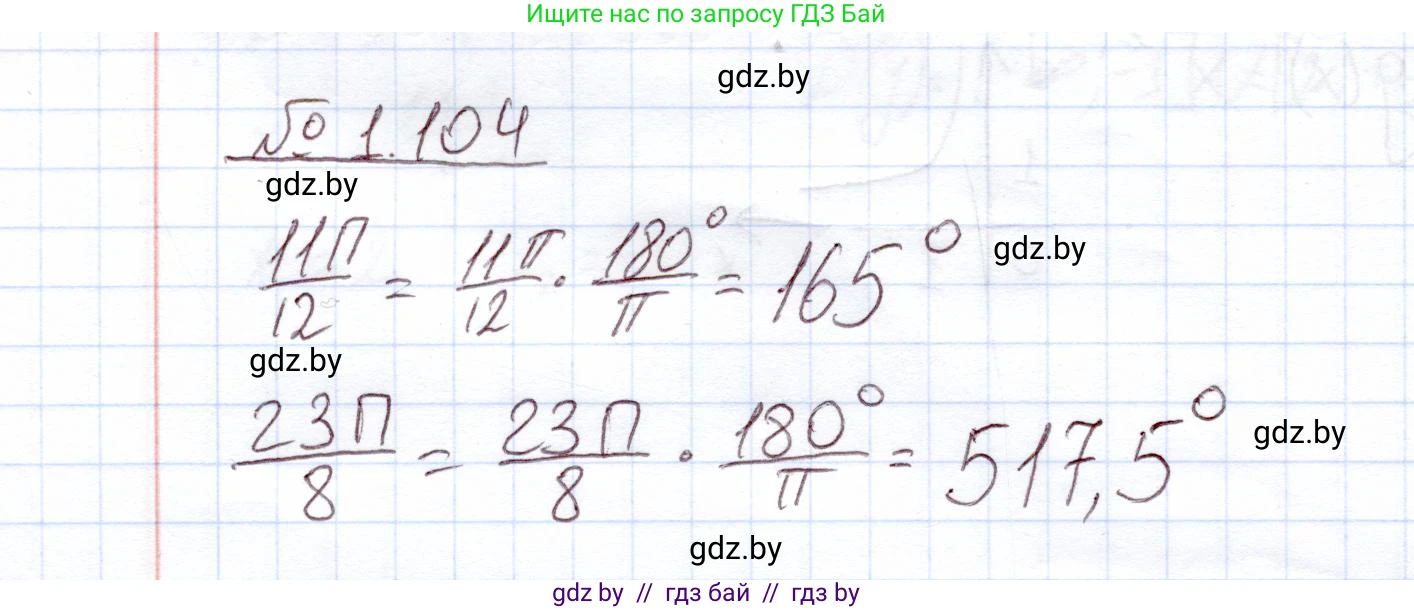 Ищите нас по запросу ГДЗ Бай
gdz.by
№ 1.104
gdz.by
11П/12 = 11π/12 · 180°/π = 165° gdz.by
gdz.by
23П/8 = 23П/8 · 180°/π = 517,5° gdz.by
gdz.by
gdz by // гдз бай // гдз by